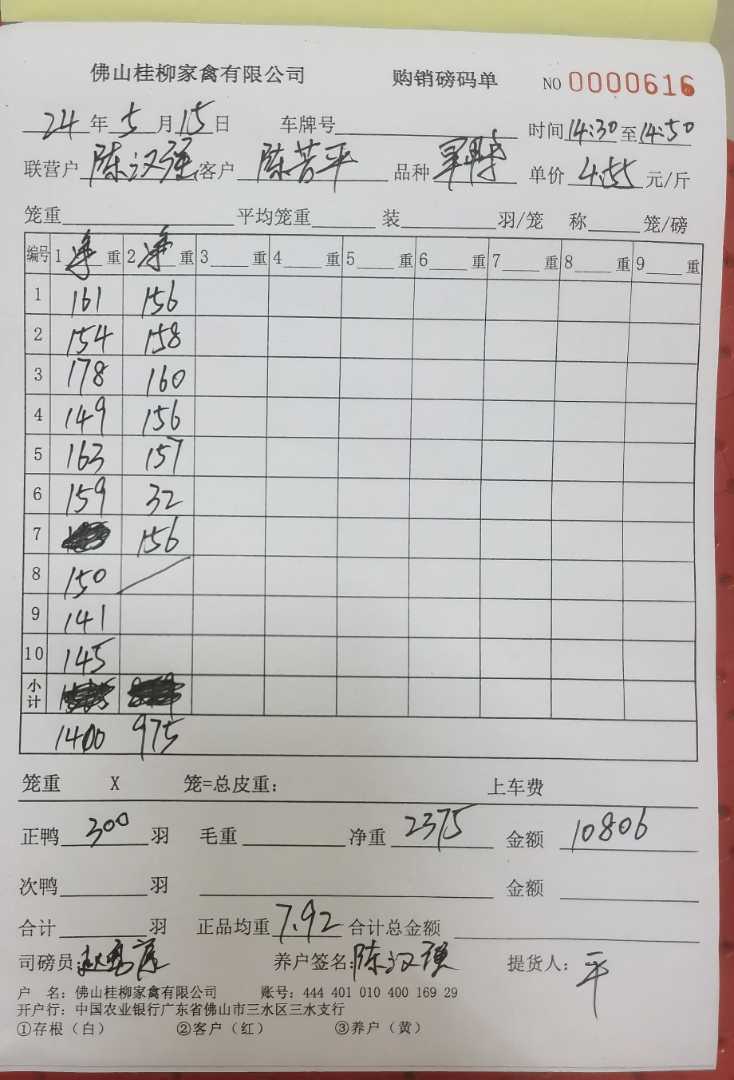 佛山桂柳家禽有限公司 购销磅码单 NO 0000616
24年5月15日 车牌号 时间14:30至14:50
联营户 陈汉强 客户 陈苦平 品种 单价 4.55 元/斤
笼重 平均笼重 装 羽/笼 称 笼/磅
编号 1净重 2净重 3 重 4 重 5 重 6 重 7 重 8 重 9 重
1 161 156
2 154 158
3 178 160
4 149 156
5 163 157
6 159 32
7 156
8 150
9 141
10 145
小计
1400 975
笼重 X 笼=总皮重: 上车费
正鸭 300 羽 毛重 净重 2375 金额 10806
次鸭 羽 金额
合计 羽 正品均重 7.92 合计总金额
司磅员: 养户签名: 陈汉强 提货人: 平
户 名: 佛山桂柳家禽有限公司 账号: 444 401 010 400 169 29
开户行: 中国农业银行广东省佛山市三水区三水支行
①存根（白） ②客户（红） ③养户（黄）